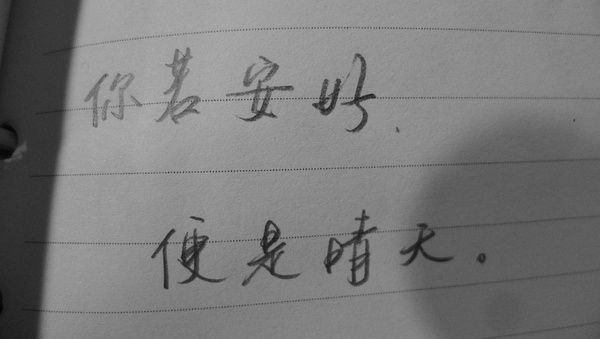 你若安好.
便是晴天。